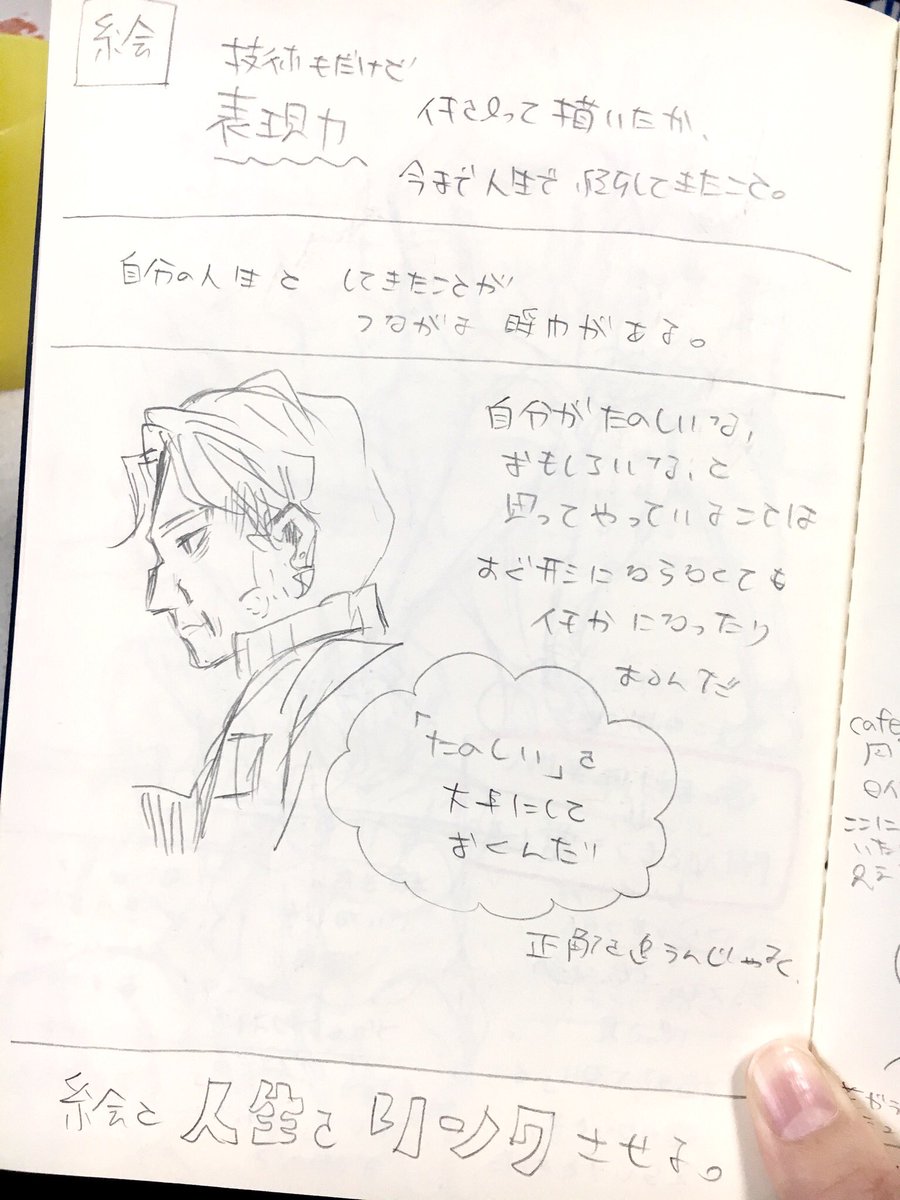 絵
技術もだけど
表現力
何を思って描いたか、
今まで人生で 経験してきたこと。
自分の人生と してきたことが
つながる 瞬間がある。
自分が たのしいな、
おもしろいな、と
思ってやっていることは
すぐ形にならなくても
何かになったり
するんだ
「たのしい」を
大事にして
おくんだ!
正解を追うんじゃなく、
絵と 人生と リンク させる。
cafe
ここに